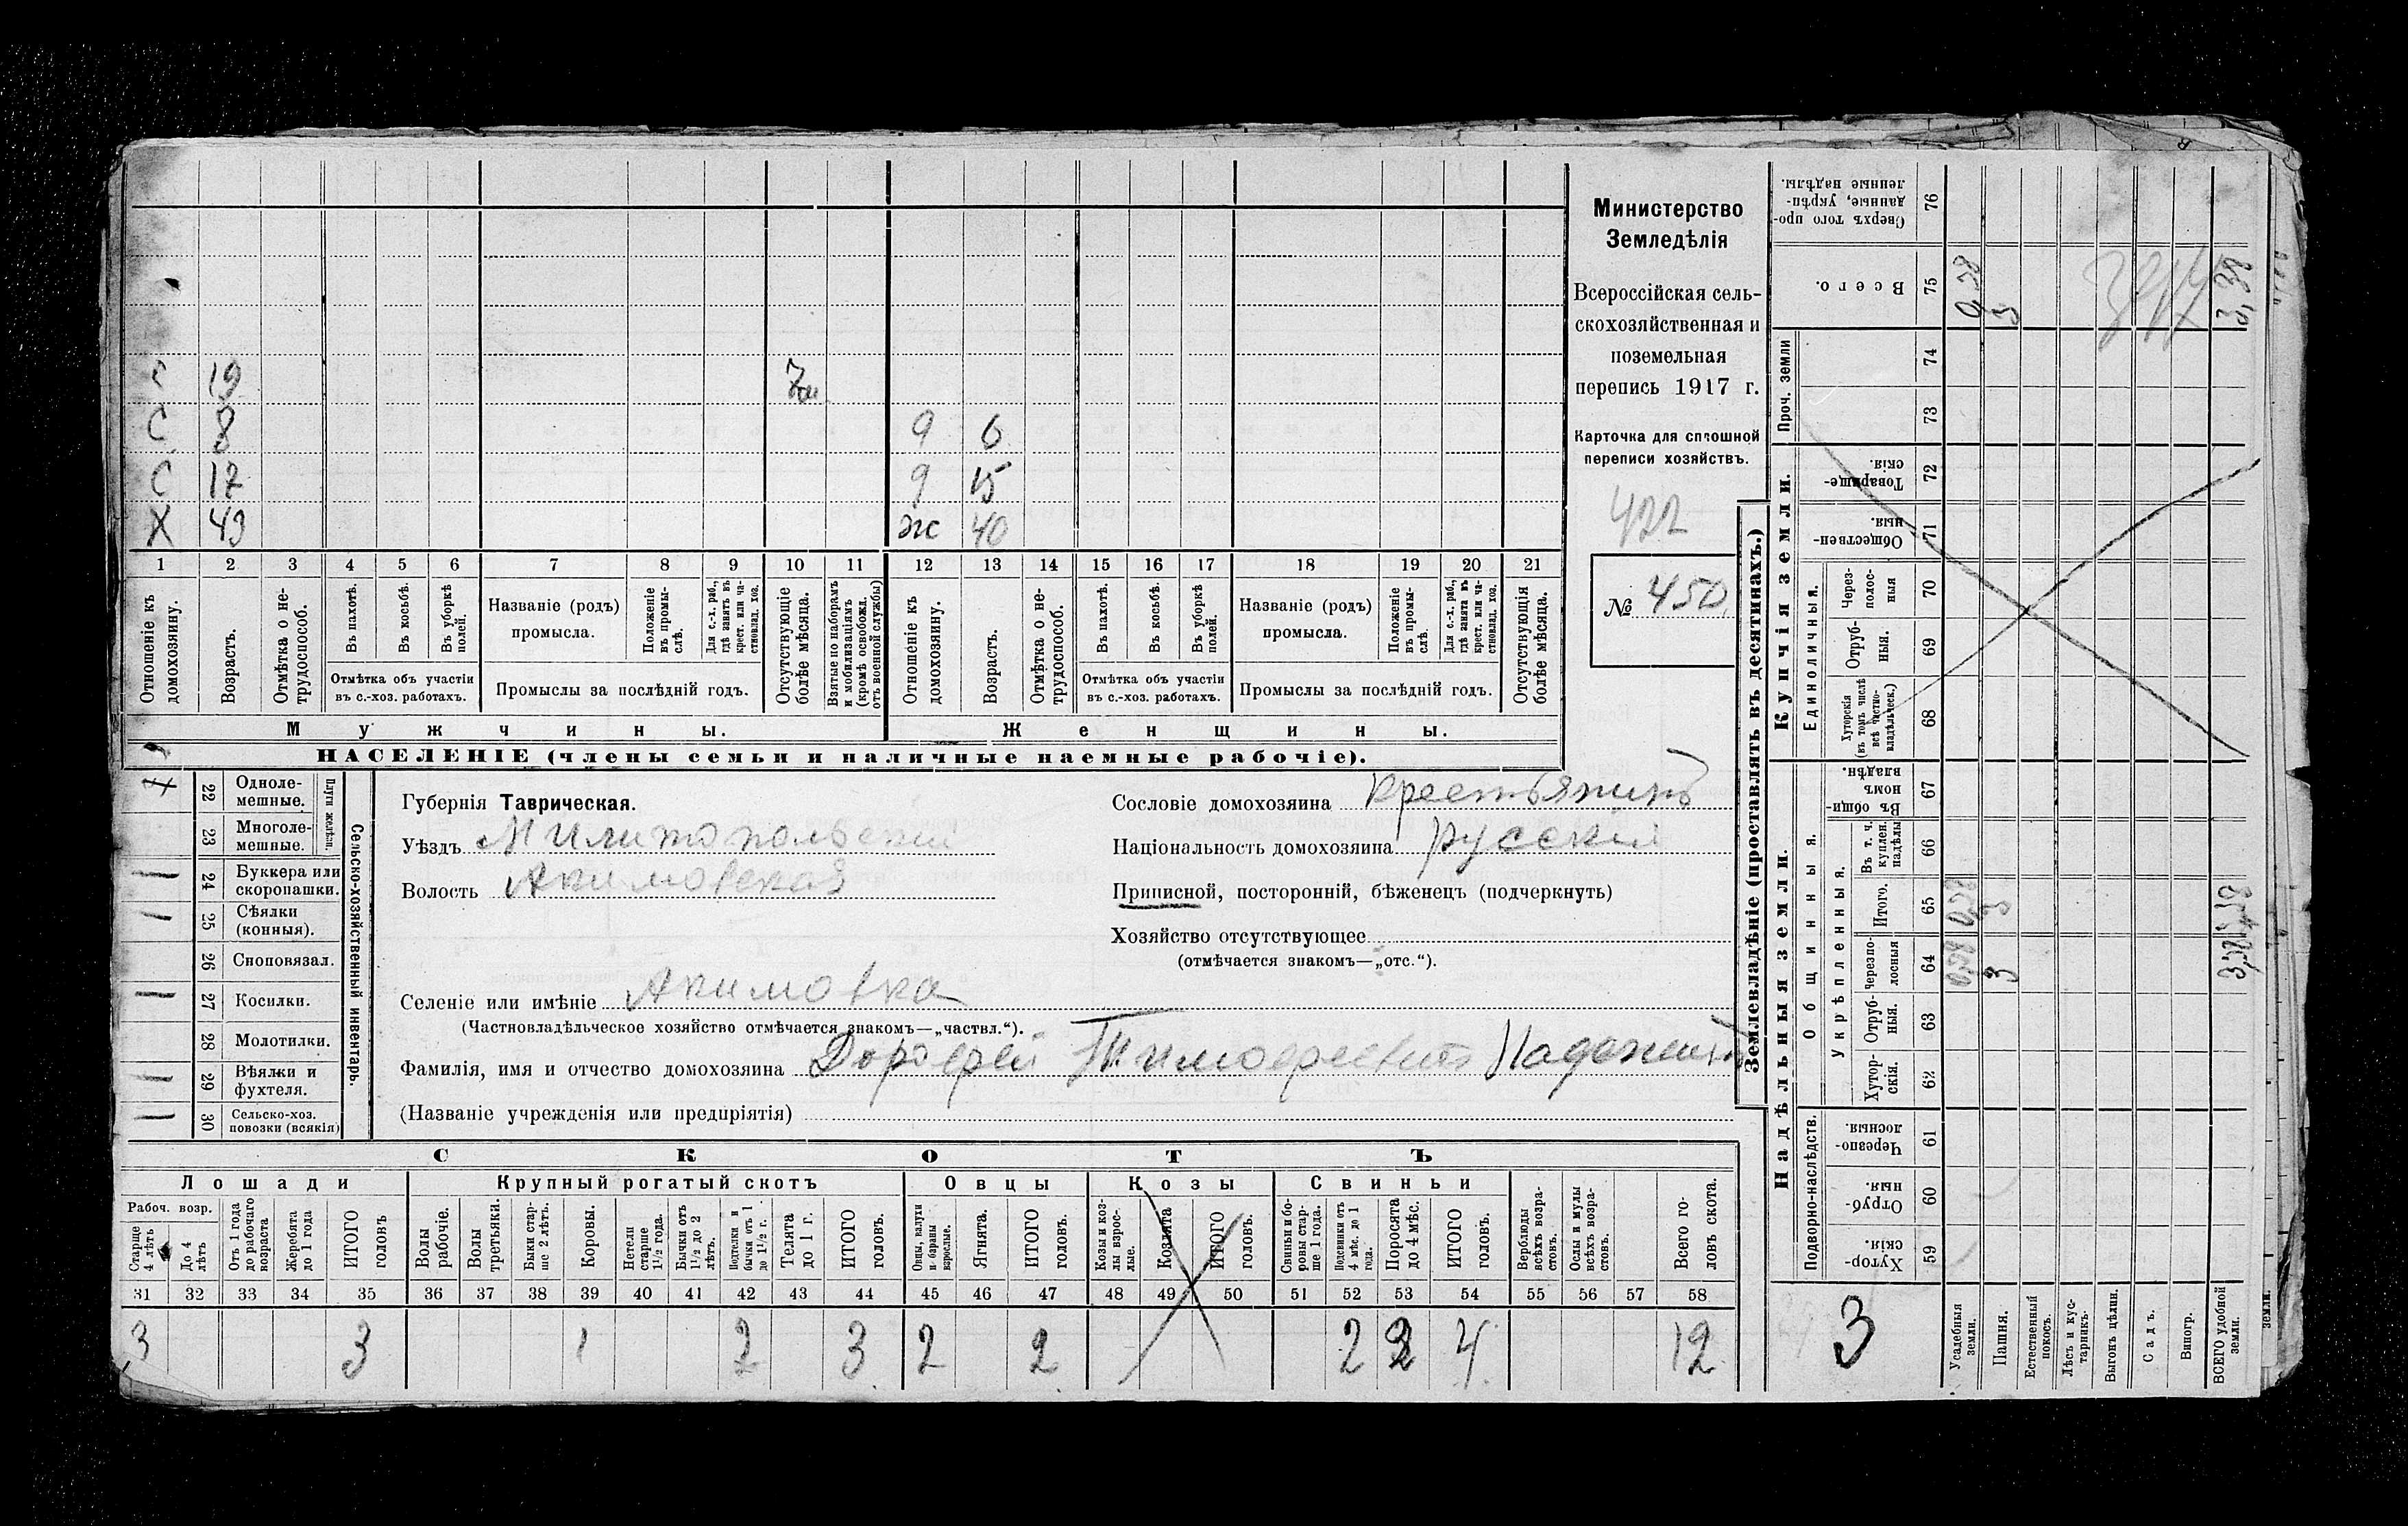 Министерство
Земледѣлія
Всероссійская сель-
скохозяйственная и
поземельная
перепись 1917 г.
Карточка для сплошной
переписи хозяйствъ.
422
№ 450
С 19
С 8 9 6
С 17 9 15
Х 43 ж 40
1 2 3 4 5 6 7 8 9 10 11 12 13 14 15 16 17 18 19 20 21
Отношеніе къ домохозяину.
Возрастъ.
Отмѣтка о не-трудоспособ.
Въ пахотѣ.
Въ косьбѣ.
Въ уборкѣ полей.
Отмѣтка объ участіи
въ с.-хоз. работахъ.
Названіе (родъ)
промысла.
Положеніе въ промы-слѣ.
Для с.-х. раб., гдѣ занятъ въ крест. или ча-стновлад. хоз.
Промыслы за послѣдній годъ.
Отсутствующіе болѣе мѣсяца.
Взятые по наборамъ и мобилизаціямъ (кромѣ освобожд. отъ военной службы)
Отношеніе къ домохозяину.
Возрастъ.
Отмѣтка о не-трудоспособ.
Въ пахотѣ.
Въ косьбѣ.
Въ уборкѣ полей.
Отмѣтка объ участіи
въ с.-хоз. работахъ.
Названіе (родъ)
промысла.
Положеніе въ промы-слѣ.
Для с.-х. раб., гдѣ занята въ крест. или ча-стновлад. хоз.
Промыслы за послѣдній годъ.
Отсутствующія болѣе мѣсяца.
Мужчины. Женщины.
НАСЕЛЕНІЕ (члены семьи и наличные наемные рабочіе).
Сельско-хозяйственный инвентарь.
Плуги желѣзн.
22 Одноле-мешные.
23 Многоле-мешные.
24 Буккера или скоропашки.
25 Сѣялки (конныя).
26 Сноповязал.
27 Косилки.
28 Молотилки.
29 Вѣялки и фухтеля.
30 Сельско-хоз. повозки (всякія)
Губернія Таврическая.
Уѣздъ Милитопольскій
Волость Акимовская
Сословіе домохозяина крестьянинъ
Національность домохозяина русскій
Приписной, посторонній, бѣженецъ (подчеркнуть)
Хозяйство отсутствующее
(отмѣчается знакомъ—„отс.“).
Селеніе или имѣніе Акимовка
(Частновладѣльческое хозяйство отмѣчается знакомъ—„частвл.“).
Фамилія, имя и отчество домохозяина Дорофей Тимофеевичъ
(Названіе учрежденія или предпріятія)
СКОТЪ
Лошади Крупный рогатый скотъ Овцы Козы Свиньи
Рабоч. возр.
Старше 4 лѣтъ
До 4 лѣтъ
Отъ 1 года до рабочаго возраста
Жеребята до 1 года
ИТОГО головъ
Волы рабочіе.
Волы третьяки.
Быки стар-ше 2 лѣтъ.
Коровы.
Нетели старше 1½ года.
Бычки отъ 1½ до 2 лѣтъ.
Подтелки и бычки отъ 1 до 1½ г.
Телята до 1 г.
ИТОГО головъ.
Овцы, валухи и бараны взрослые.
Ягнята.
ИТОГО головъ.
Козы и коз-лы взрос-лые.
Козлята
ИТОГО головъ.
Свиньи и бо-ровы стар-ше 1 года.
Подсвинки отъ 4 мѣс. до 1 года.
Поросята до 4 мѣс.
ИТОГО головъ.
Верблюды всѣхъ возра-стовъ.
Ослы и мулы всѣхъ возра-стовъ.
Всего го-ловъ скота.
31 32 33 34 35 36 37 38 39 40 41 42 43 44 45 46 47 48 49 50 51 52 53 54 55 56 57 58
3 3 1 2 3 2 2 2 2 4 12
Землевладѣніе (проставлять въ десятинахъ.)
Купчія земли.
Надѣльныя земли.
Сверхъ того про-данные, укрѣп-ленные надѣлы. 76
Всего. 75 0,38 3 3,38
Проч. земли 74 73
Товарище-скія. 72
Обществен-ныя. 71
Единоличныя.
Через-полос-ныя 70
Отруб-ныя. 69
Хуторскія (въ томъ числѣ всѣ частно-владѣльческ.) 68
Общинныя.
Въ общин-номъ владѣн. 67
Укрѣпленныя.
Въ т. ч. куплен. надѣлы 66
Итого. 65 0,38 3
Черезпо-лосныя 64 0,38 3
Отруб-ныя. 63
Хутор-скія. 62
Подворно-наслѣдств.
Черезпо-лосныя. 61
Отруб-ныя. 60
Хутор-скія. 59
3
Усадебныя земли.
Пашня.
Естественный покосъ.
Лѣсъ и кус-тарникъ.
Выгонъ цѣлин.
Садъ.
Виногр.
ВСЕГО удобной земли.
земли.